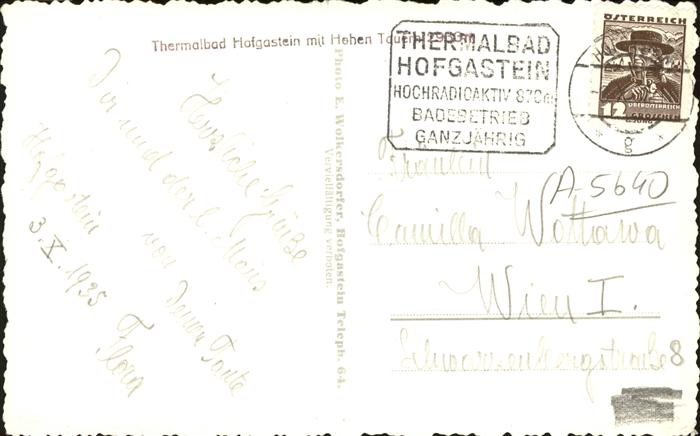 Thermalbad Hofgastein mit Hohen Tauern 2909m
Herzliche Grüße
Dir und der l. Mais
von Deiner Tante
Flora
Hofgastein
3. X. 1935
Photo E. Wolkersdorfer, Hofgastein Teleph. 64.
Vervielfältigung verboten.
THERMALBAD
HOFGASTEIN
HOCHRADIOAKTIV 870m
BADEBETRIEB
GANZJÄHRIG
ÖSTERREICH
12
OBERÖSTERREICH
GROSCHEN
* g *
Fräulein
A-5640
Camilla Wottawa
Wien I.
Schwarzenbergstraße 8